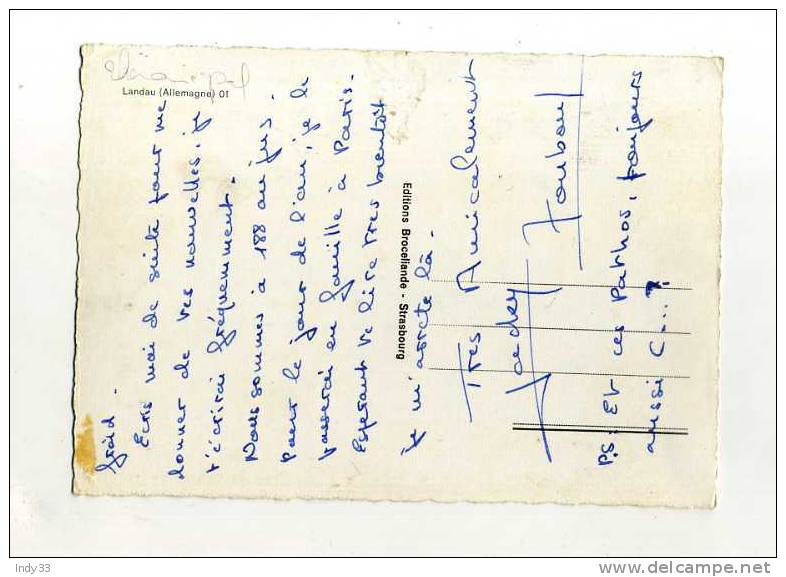 Landau (Allemagne) 01
froid.
Ecris moi de suite pour me
donner de tes nouvelles, je
t'écrirai fréquemment.
Nous sommes à 188 au jus.
pour le jour de l'an, je le
passerai en famille à Paris.
Esperant te lire très bientôt
je m'arrete là.
Editions Broceliande - Strasbourg
Très Amicalement
Jacky
PS: Et ces Pathos, toujours
aussi C...?
Indy33
delcampe.net